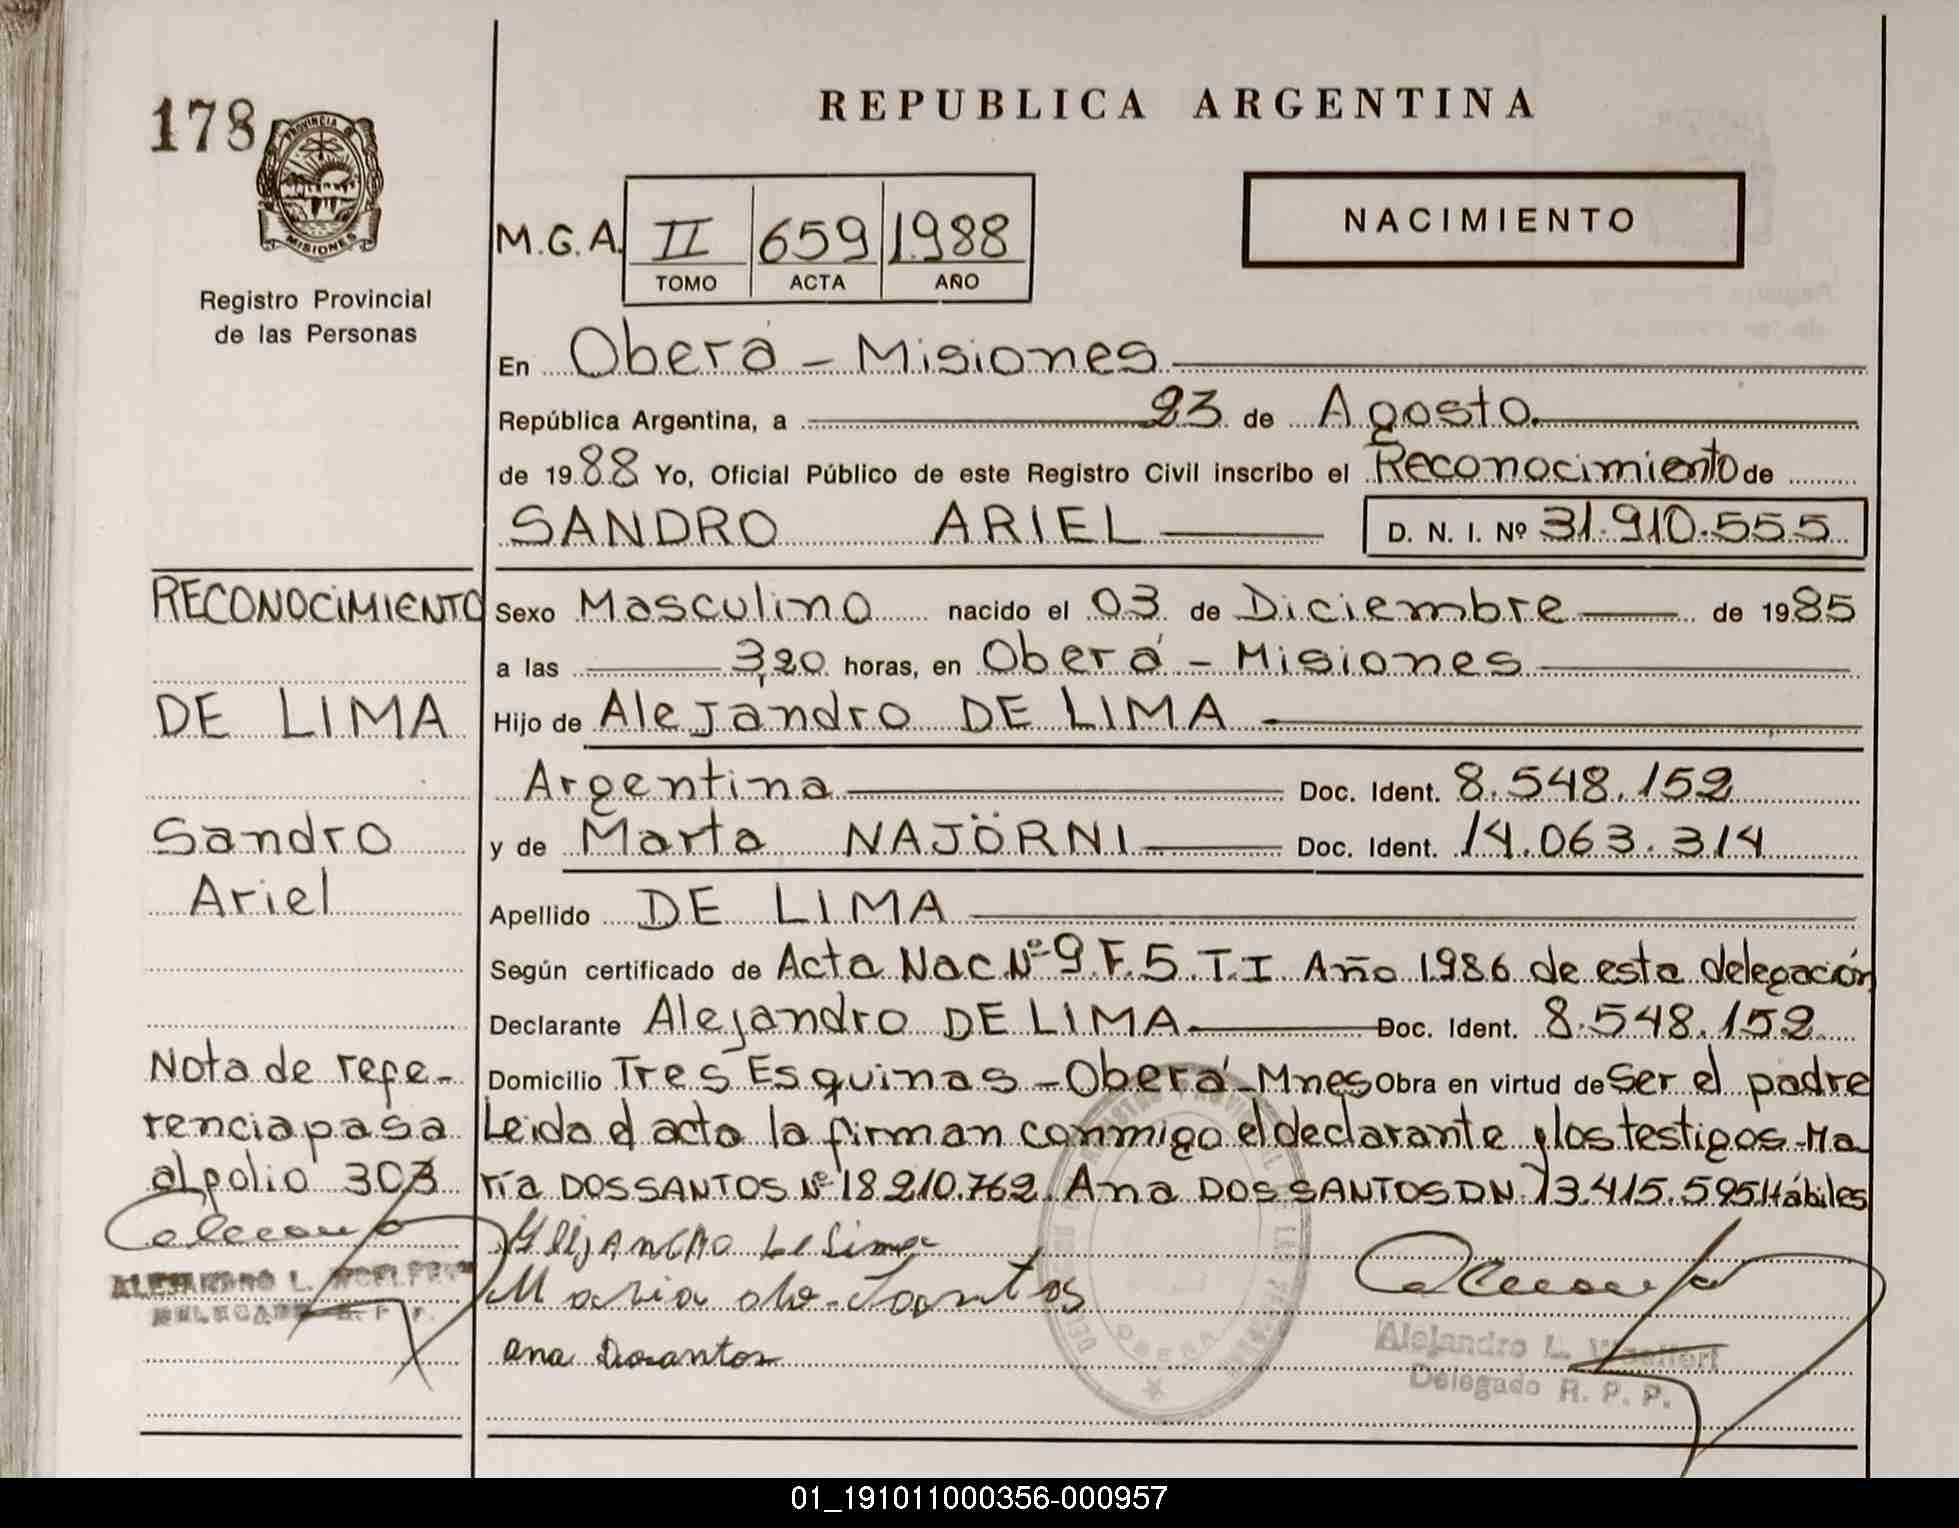 178
PROVINCIA DE
MISIONES
Registro Provincial
de las Personas
REPUBLICA ARGENTINA
M.G.A. II 659 1988
TOMO ACTA AÑO
NACIMIENTO
En Oberá - Misiones
República Argentina, a 23 de Agosto
de 1988 Yo, Oficial Público de este Registro Civil inscribo el Reconocimiento de
SANDRO ARIEL D. N. I. Nº 31.910.555
Sexo Masculino nacido el 03 de Diciembre de 1985
a las 3,20 horas, en Oberá - Misiones
Hijo de Alejandro DE LIMA
Argentina Doc. Ident. 8.548.152
y de Marta NAJÖRNI Doc. Ident. 14.063.314
Apellido DE LIMA
Según certificado de Acta Nac Nº 9 F. 5 T. I Año 1986 de esta delegación
Declarante Alejandro DE LIMA Doc. Ident. 8.548.152
Domicilio Tres Esquinas - Oberá - Mnes Obra en virtud de Ser el padre
Leido el acta la firman conmigo el declarante y los testigos. Ma
ría DOS SANTOS Nº 18.210.762. Ana DOS SANTOS DN. 13.415.595 Hábiles
Alejandro de Lima
Maria do Santos
Ana Dosantos
Alejandro L.
Delegado R. P. P.
OBERA
RECONOCIMIENTO
DE LIMA
Sandro
Ariel
Nota de refe-
rencia pasa
al folio 303
ALEJANDRO L.
DELEGADO R. P. P.
01_191011000356-000957